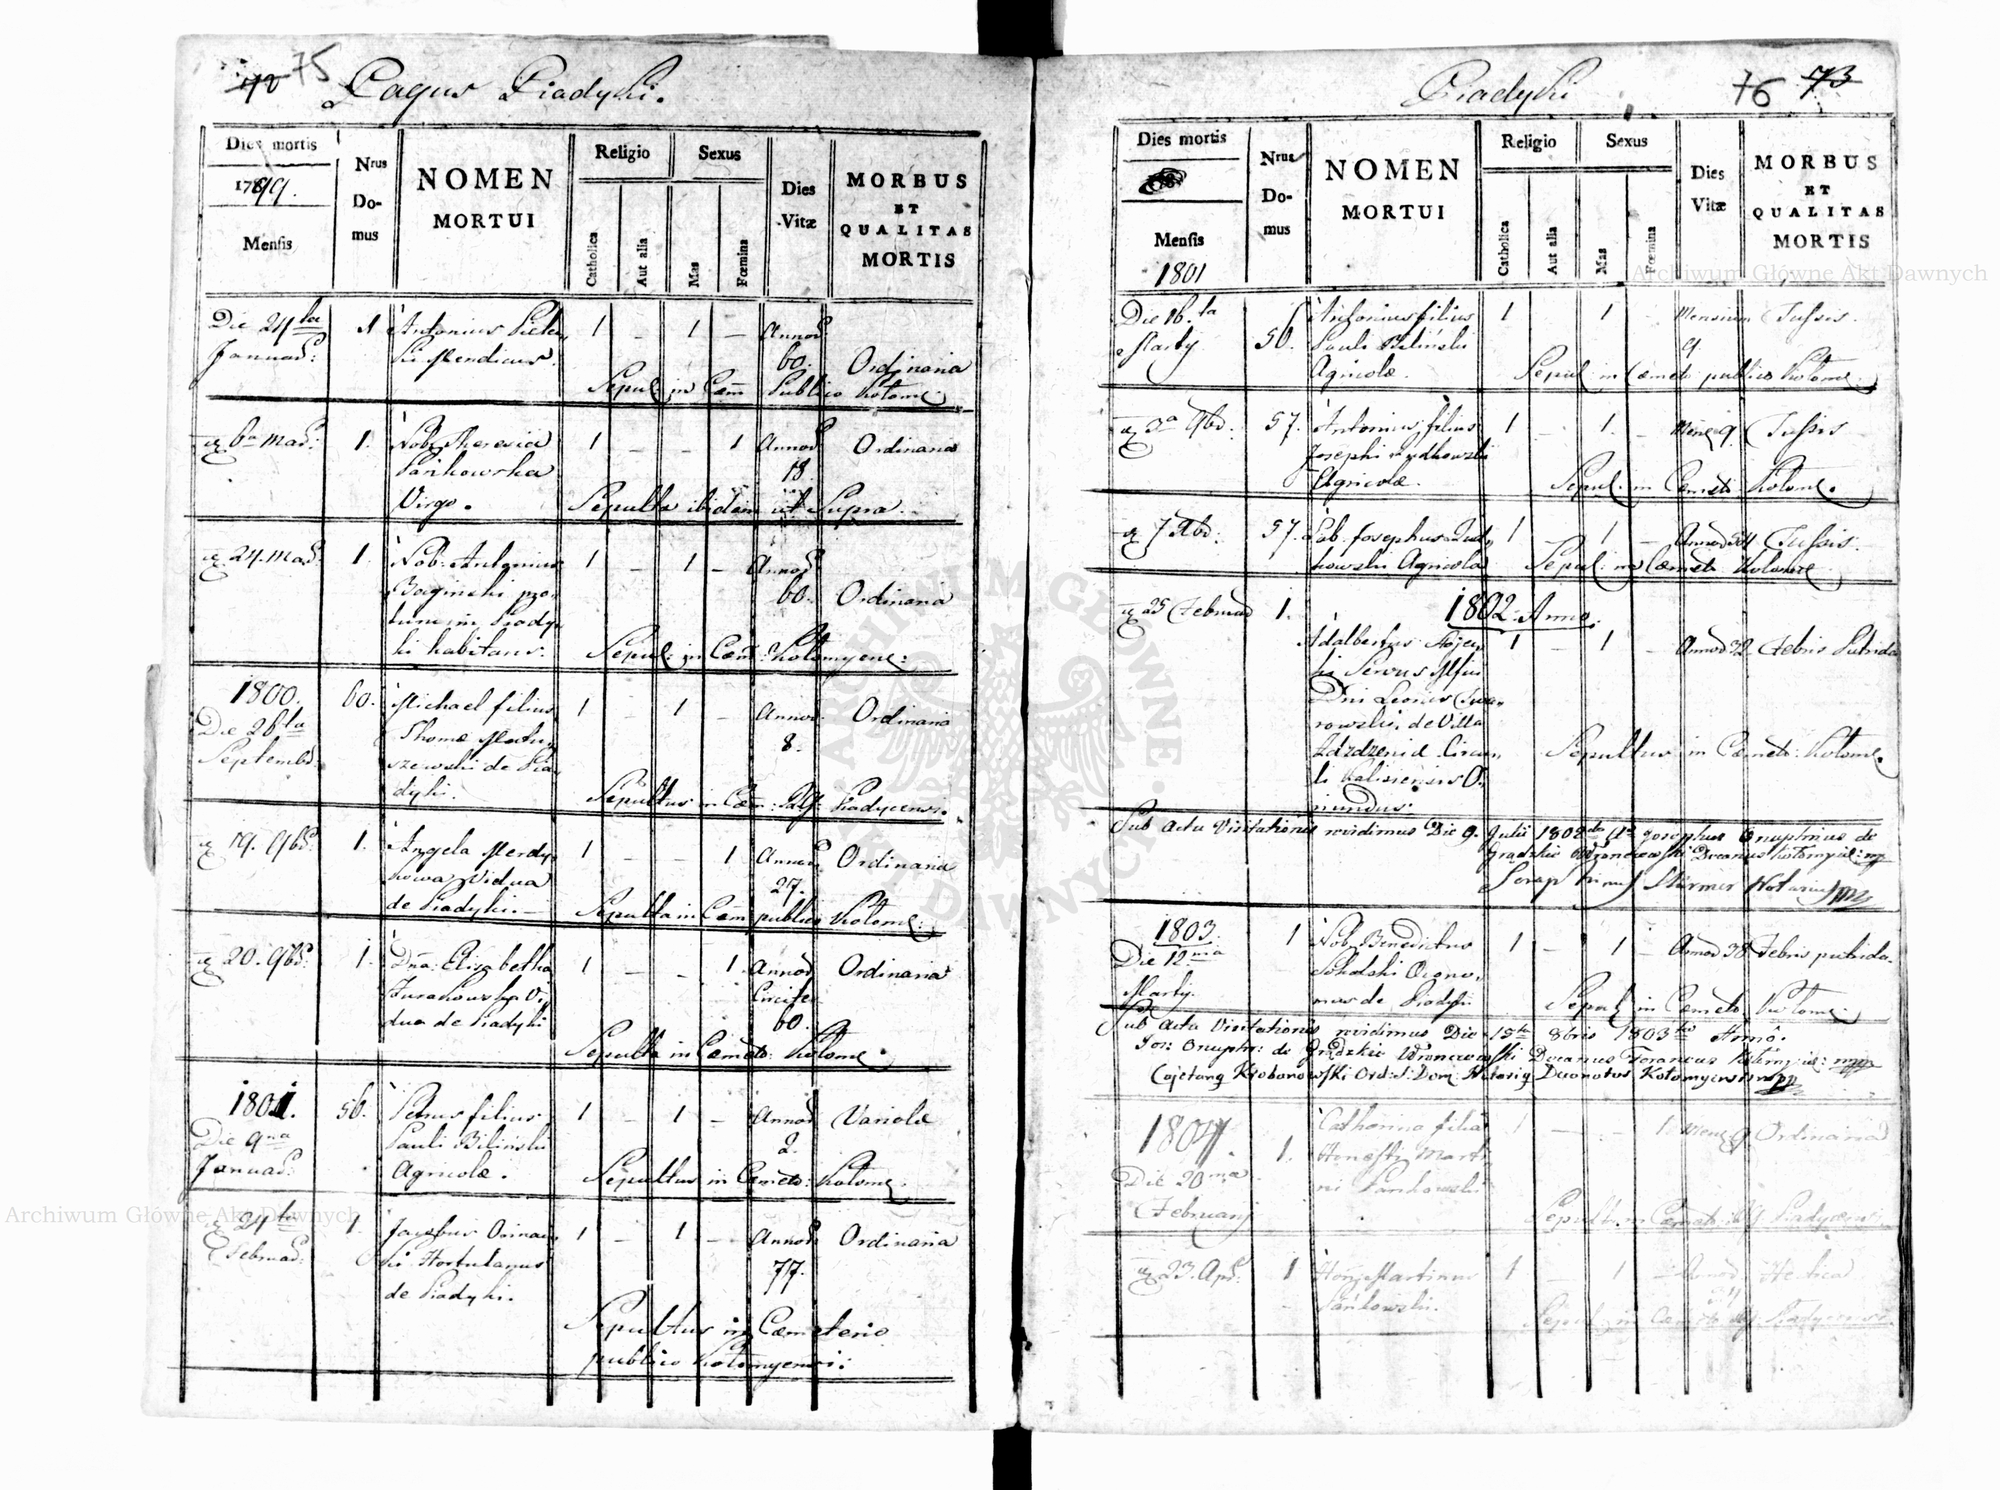 75
Pagus Piadyki.
Dies mortis
1799.
Mensis
Nrus
Do-
mus
NOMEN
MORTUI
Religio
Catholica
Aut alia
Sexus
Mas
Fœmina
Dies
Vitæ
MORBUS
ET
QUALITAS
MORTIS
Die 24ta
Januar:
1
Antonius
Mendicus.
1 – 1 –
Annor
60.
Ordinaria
Sepul: in Cæm Publico Kolome
a 6a Mar:
1.
Nob: Theresia
Pańkowska
Virgo.
1 – – 1
Annor
18.
Ordinaria
Sepulta ibidem ut Supra.
a 24. Mar:
1.
Nob: Antonius
Baginski
in Piady
ki habitans.
1 – 1 –
Annor
60.
Ordinaria
Sepul: in Cæm: Kolomyens:
1800.
Die 26ta
Septembr.
60.
Michael filius
Thomæ
szewski de Pia
dyki.
1 – 1 –
Annor.
8.
Ordinaria
Sepultus in Cæm: Piadycensi.
a 19. 9br:
1.
Angela
kowa Vidua
de Piadyki.
1 – – 1
Annor
27.
Ordinaria
Sepulta in Cæm publico Kolome:
a 20. 9br:
1.
Dna: Elisabetha
Żurakowska Vi
dua de Piadyki
1 – – 1.
Annor
Circiter
60.
Ordinaria
Sepulta in Cæmete: Kolome.
1801.
Die 9na
Januar:
56.
Petrus filius
Pauli Biliński
Agricolæ.
1 – 1 –
Annor
2.
Variolæ
Sepultus in Cæmete: Kolome.
a 24ta
Februar:
1.
Jacobus
ki Hortulanus
de Piadyki.
1 – 1 –
Annor
77.
Ordinaria
Sepultus in Cæmeterio
publico Kolomyensi:
Piadyki
76 73
Dies mortis
Mensis
1801
Nrus
Do-
mus
NOMEN
MORTUI
Religio
Catholica
Aut alia
Sexus
Mas
Fœmina
Dies
Vitæ
MORBUS
ET
QUALITAS
MORTIS
Die 16.ta
Martÿ
56.
Antonius filius
Pauli Biliński
Agricolæ.
1 1 –
Mensium
9.
Tussis.
Sepul in Cæmete publico Kolome.
a 3a 9br:
57.
Antonius filius
Josephi
Agricolæ.
1 – 1. –
Mens 9.
Tussis
Sepul. in Cæmete Kolome.
a 7 Xbr:
57.
Lab. Josephus
kowski Agricola
1 1 –
Annor 34
Tussis.
Sepul: in Cæmete Kolome
1802. Anno.
a 25 Februar
1.
Adalbertus
ki Servus
Dni Leonis
rowski, de Villa
li Kalisiensis O
riundus.
1 – 1 –
Annor 32.
Febris Putrida
Sepultus in Cæmete: Kolome.
Sub Actu Visitationis revidimus Die 9. Julii 1802do Josephus Onuphrius de
Grądzkie Wronowski Decanus Kolomyie: mp
Notarius mp
1803.
Die 12ma
Martÿ.
1
Nob: Benedictus
Sokolski Œcono
mus de Piadyki
1 – 1 –
Annor 38
Febris putrida.
Sepul in Cæmete Kolome.
Sub Actu Visitationis revidimus Die 15ta 8bris 1803tio Anno.
Jos: Onuph: de Grądzkie Wronowski Decanus Foraneus Kolomyie: mp
Cajetanus
Decanatus Kolomyensis mp
1804.
Die 20ma
Februarÿ
1.
Catharina filia
Honesti Marti
ni Pankowski
1 – – 1.
Mens 9
Ordinaria
Sepult: in Cæmete: Piadycensi
a 23. Apr:
1
Hones: Martinus
Pańkowski.
1 – 1 –
Annor
Hectica
Sepul: in Cæmete Piadycensi.
Archiwum Główne Akt Dawnych
Archiwum Główne Akt Dawnych
ARCHIWUM GŁÓWNE AKT DAWNYCH